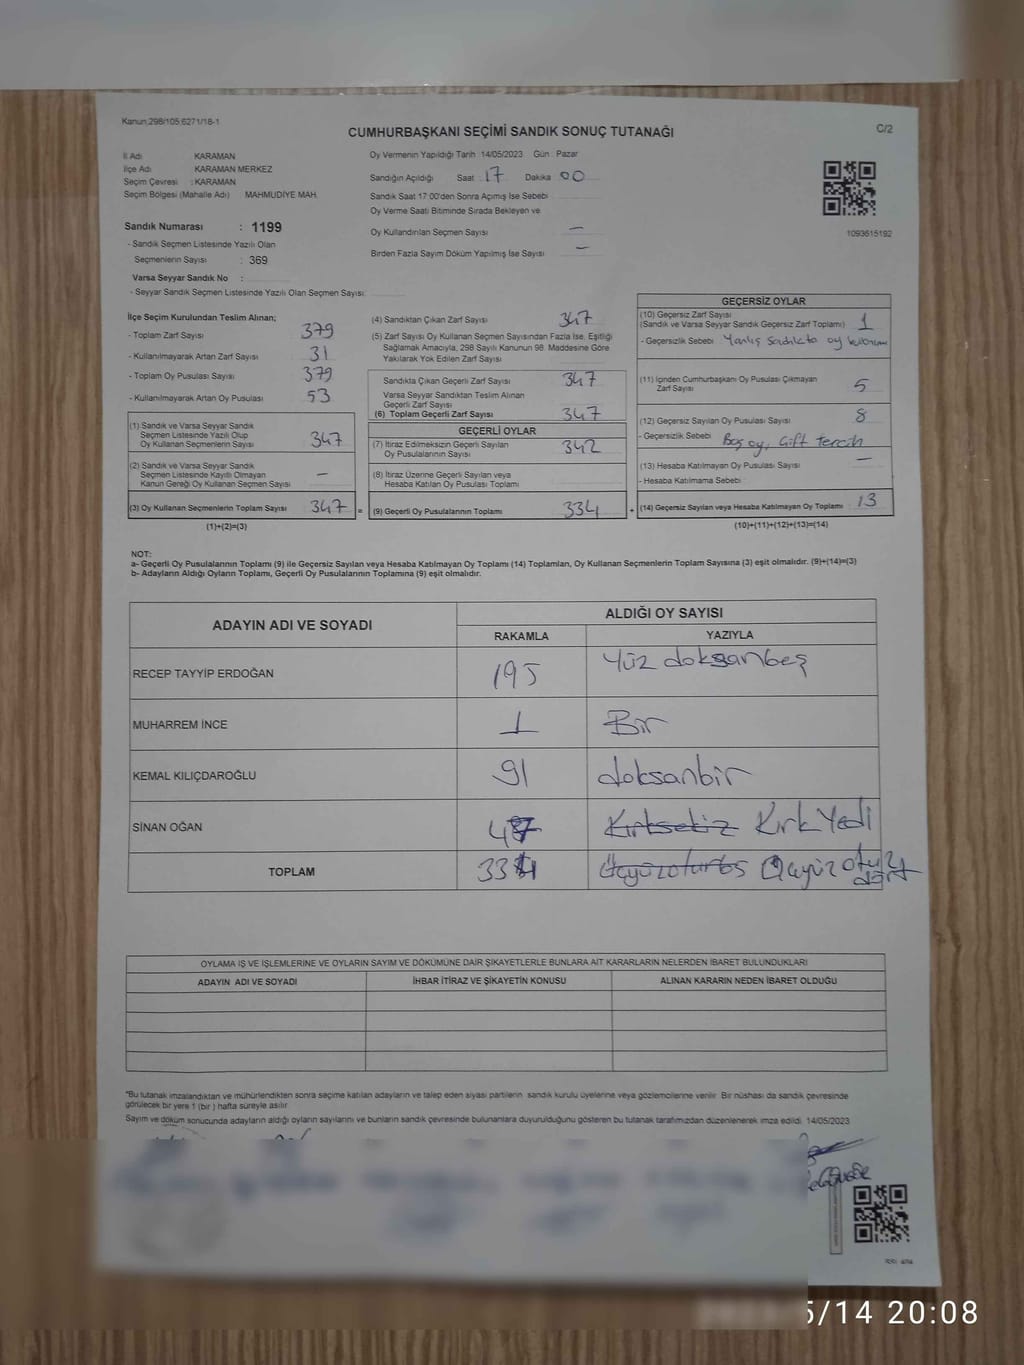 Kanun;298/105;6271/18-1
CUMHURBAŞKANI SEÇİMİ SANDIK SONUÇ TUTANAĞI
C/2
İl Adı KARAMAN
İlçe Adı KARAMAN MERKEZ
Seçim Çevresi : KARAMAN
Seçim Bölgesi (Mahalle Adı) MAHMUDİYE MAH.
Sandık Numarası : 1199
- Sandık Seçmen Listesinde Yazılı Olan
Seçmenlerin Sayısı : 369
Varsa Seyyar Sandık No :
- Seyyar Sandık Seçmen Listesinde Yazılı Olan Seçmen Sayısı:
Oy Vermenin Yapıldığı Tarih :14/05/2023 Gün : Pazar
Sandığın Açıldığı Saat : 17 Dakika 00
Sandık Saat 17:00'den Sonra Açılmış İse Sebebi
Oy Verme Saati Bitiminde Sırada Bekleyen ve
Oy Kullandırılan Seçmen Sayısı —
Birden Fazla Sayım Döküm Yapılmış İse Sayısı —
1093615192
İlçe Seçim Kurulundan Teslim Alınan;
- Toplam Zarf Sayısı 379
- Kullanılmayarak Artan Zarf Sayısı 31
- Toplam Oy Pusulası Sayısı 379
- Kullanılmayarak Artan Oy Pusulası 53
(1) Sandık ve Varsa Seyyar Sandık
Seçmen Listesinde Yazılı Olup
Oy Kullanan Seçmenlerin Sayısı 347
(2) Sandık ve Varsa Seyyar Sandık
Seçmen Listesinde Kayıtlı Olmayan
Kanun Gereği Oy Kullanan Seçmen Sayısı —
(3) Oy Kullanan Seçmenlerin Toplam Sayısı 347 =
(1)+(2)=(3)
(4) Sandıktan Çıkan Zarf Sayısı 347
(5) Zarf Sayısı Oy Kullanan Seçmen Sayısından Fazla İse, Eşitliği
Sağlamak Amacıyla, 298 Sayılı Kanunun 98. Maddesine Göre
Yakılarak Yok Edilen Zarf Sayısı
Sandıkta Çıkan Geçerli Zarf Sayısı 347
Varsa Seyyar Sandıktan Teslim Alınan
Geçerli Zarf Sayısı
(6) Toplam Geçerli Zarf Sayısı 347
GEÇERLİ OYLAR
(7) İtiraz Edilmeksizin Geçerli Sayılan
Oy Pusulalarının Sayısı 342
(8) İtiraz Üzerine Geçerli Sayılan veya
Hesaba Katılan Oy Pusulası Toplamı
(9) Geçerli Oy Pusulalarının Toplamı 334 +
GEÇERSİZ OYLAR
(10) Geçersiz Zarf Sayısı
(Sandık ve Varsa Seyyar Sandık Geçersiz Zarf Toplamı) 1
- Geçersizlik Sebebi Yanlış Sandıkta oy kullanımı
(11) İçinden Cumhurbaşkanı Oy Pusulası Çıkmayan
Zarf Sayısı 5
(12) Geçersiz Sayılan Oy Pusulası Sayısı 8
- Geçersizlik Sebebi Boş oy, Çift tercih
(13) Hesaba Katılmayan Oy Pusulası Sayısı —
- Hesaba Katılmama Sebebi
(14) Geçersiz Sayılan veya Hesaba Katılmayan Oy Toplamı 13
(10)+(11)+(12)+(13)=(14)
NOT:
a- Geçerli Oy Pusulalarının Toplamı (9) ile Geçersiz Sayılan veya Hesaba Katılmayan Oy Toplamı (14) Toplamları, Oy Kullanan Seçmenlerin Toplam Sayısına (3) eşit olmalıdır. (9)+(14)=(3)
b- Adayların Aldığı Oyların Toplamı, Geçerli Oy Pusulalarının Toplamına (9) eşit olmalıdır.
ADAYIN ADI VE SOYADI ALDIĞI OY SAYISI
RAKAMLA YAZIYLA
RECEP TAYYİP ERDOĞAN 195 Yüz doksanbeş
MUHARREM İNCE 1 Bir
KEMAL KILIÇDAROĞLU 91 doksanbir
SİNAN OĞAN 47 Kırksekiz Kırk Yedi
TOPLAM 334 Üçyüzotuz dört
OYLAMA İŞ VE İŞLEMLERİNE VE OYLARIN SAYIM VE DÖKÜMÜNE DAİR ŞİKAYETLERLE BUNLARA AİT KARARLARIN NELERDEN İBARET BULUNDUKLARI
ADAYIN ADI VE SOYADI İHBAR İTİRAZ VE ŞİKAYETİN KONUSU ALINAN KARARIN NEDEN İBARET OLDUĞU
*Bu tutanak imzalandıktan ve mühürlendikten sonra seçime katılan adayların ve talep eden siyasi partilerin sandık kurulu üyelerine veya gözlemcilerine verilir. Bir nüshası da sandık çevresinde
görülecek bir yere 1 (bir) hafta süreyle asılır.
Sayım ve döküm sonucunda adayların aldığı oyların sayılarını ve bunların sandık çevresinde bulunanlara duyurulduğunu gösteren bu tutanak tarafımızdan düzenlenerek imza edildi. 14/05/2023
5/14 20:08